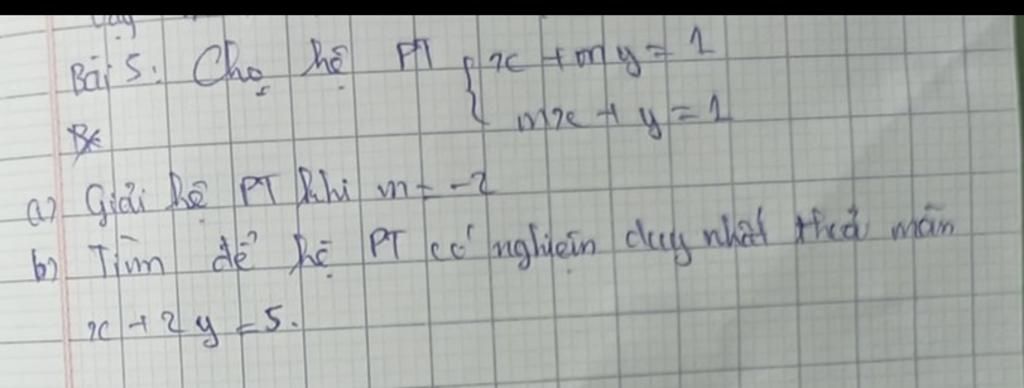 Bài 5: Cho hệ PT { x + my = 1
mx + y = 1
a) Giải hệ PT khi m = -2
b) Tìm để hệ PT có nghiệm duy nhất thoả mãn
x + 2y = 5.